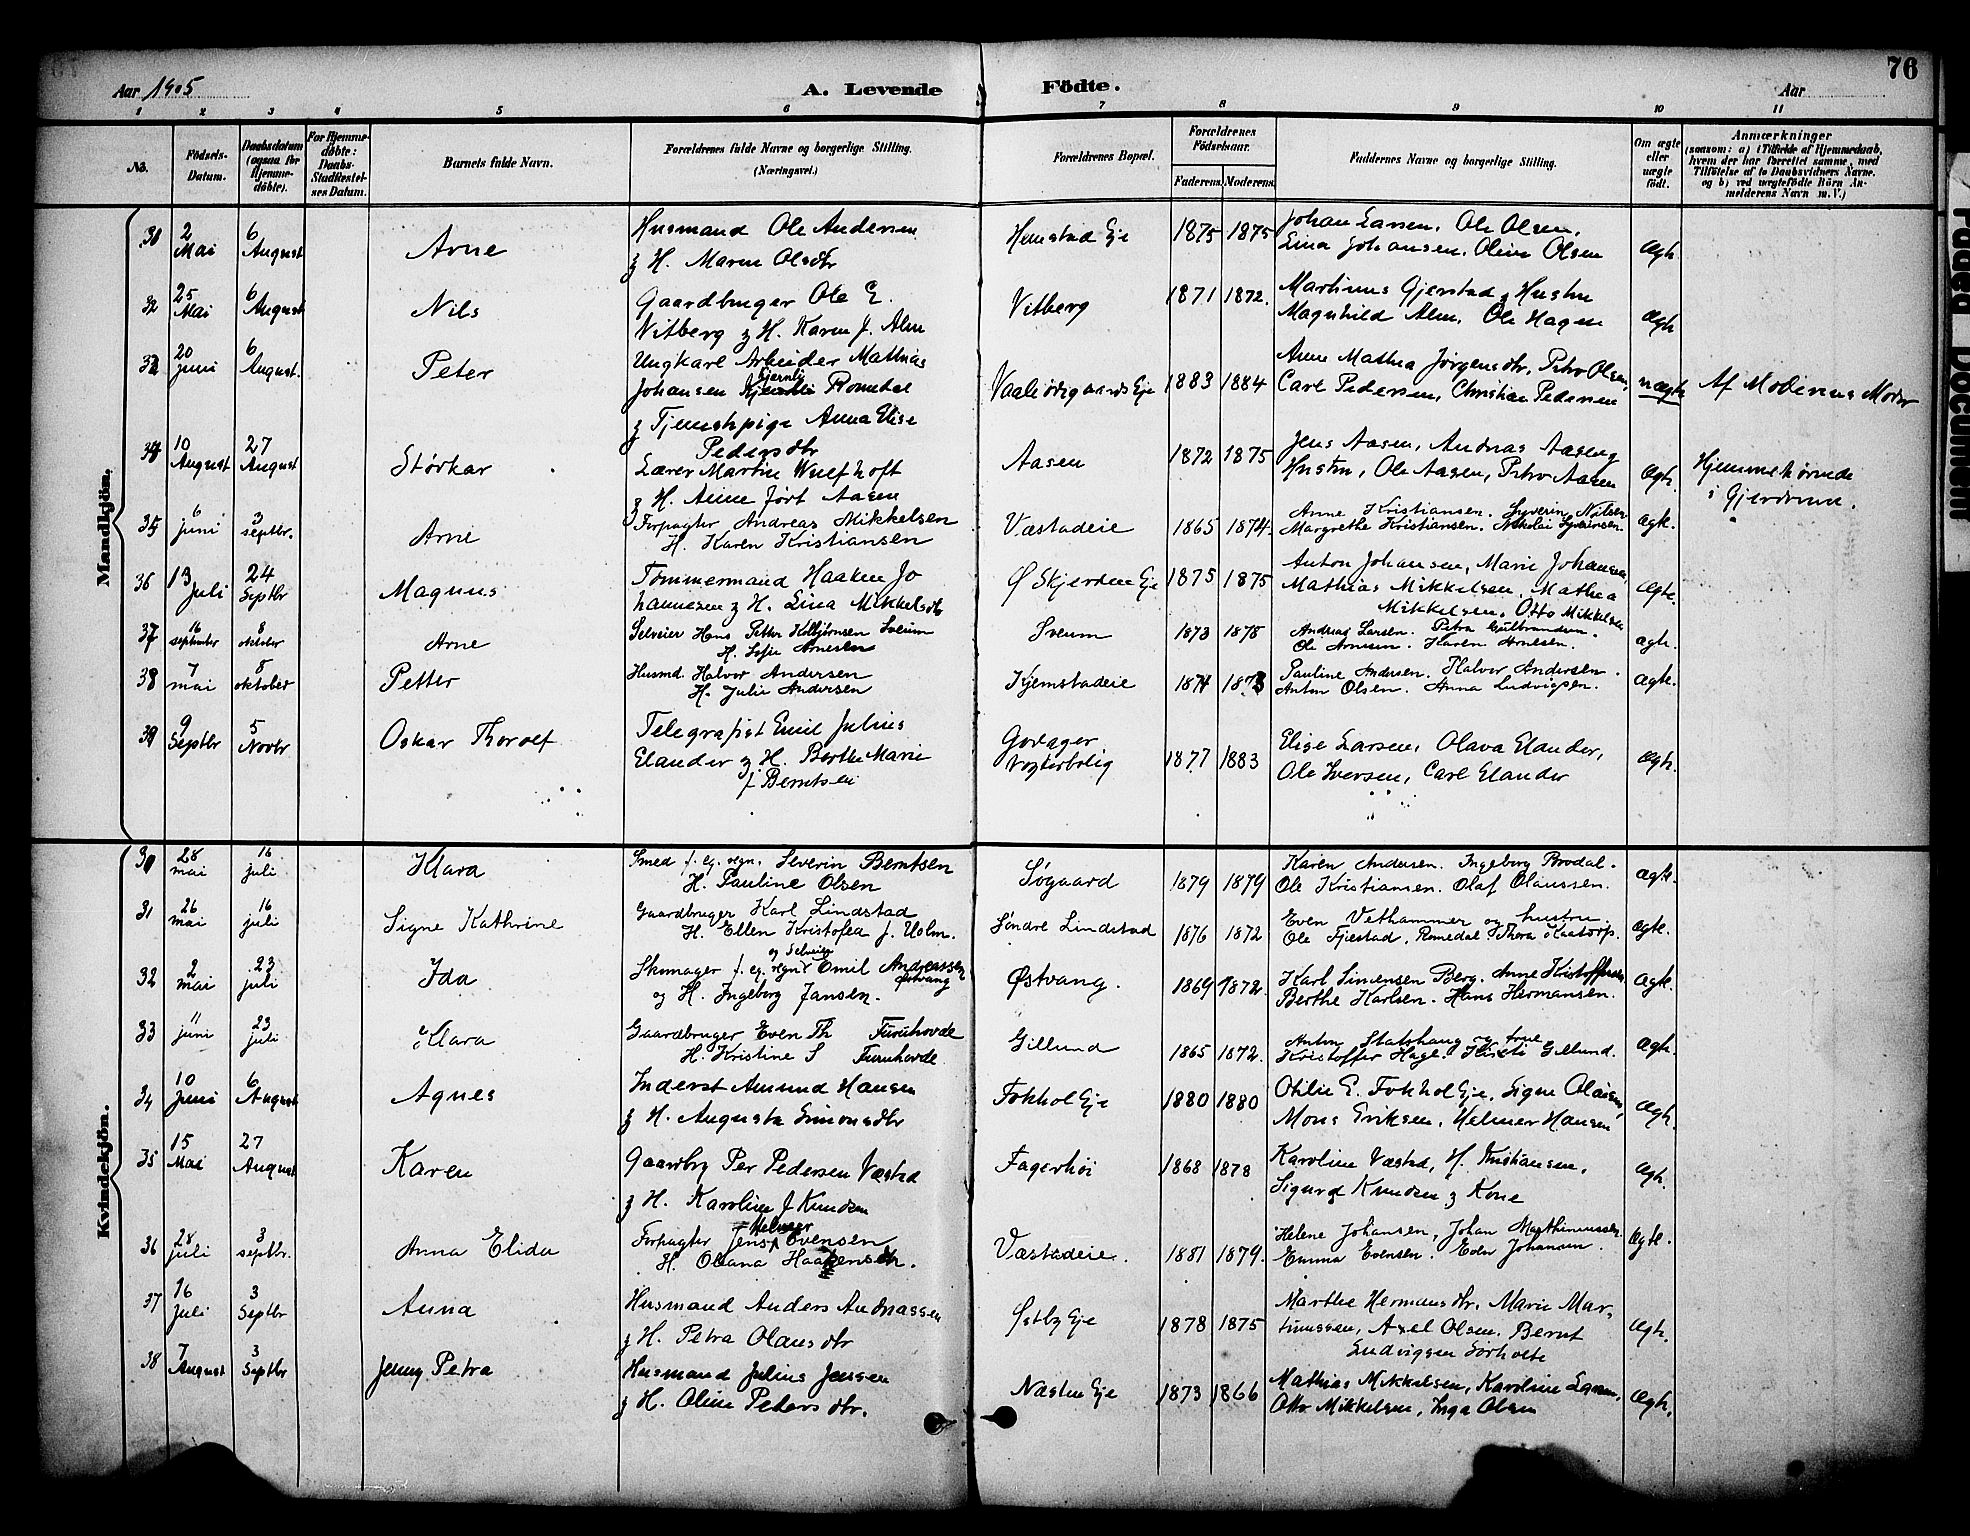 76
Aar 1905
A. Levende Födte.
Aar
1 2 3 4 5 6 7 8 9 10 11
No.
Födsels-Datum.
Daabsdatum (ogsaa for Hjemmedöbte).
For Hjemmedöbte: Daabs-Stadfæstelses Datum.
Barnets fulde Navn.
Forældrenes fulde Navne og borgerlige Stilling. (Næringsvei.)
Forældrenes Bopæl.
Forældrenes Födselsaar.
Faderens. Moderens.
Faddernes Navne og borgerlige Stilling.
Om ægte eller uægte født.
Anmærkninger
(saasom: a) i Tilfælde af Hjemmedaab, hvem der har forrettet samme, med Tilføielse af to Daabsvidners Navne, og b) ved uægtefödte Börn Anmelderens Navn m.V.)
Mandkjön.
2 Mai 6 August Arne
Husmand Ole Andersen
& H. Maren Olsdtr
1875 1875
Johan Larsen, Ole Olsen,
Lina Johansen, Oline Olsen
Ægte.
32 25 Mai 6 August Nils
Gaardbruger Ole E.
Vitberg & H. Karen J. Alm
Vitberg 1871 1872.
Martinus Gjerstad & Hustru
Magnhild Alm, Ole Hagen
Ægte
20 Juni 6 August. Peter
Ungkarl Arbeider Mathias
Johansen Romedal
& Tjenestepige Anna Elise
Pedersdtr
1883 1884
Anne Mathea Jørgensdtr, Peter Olsen,
Carl Pedersen, Christian Pedersen
uægte
Af Moderens Moder
34 10 August 27 August Størkar
Lærer Martin Wulfhoft
& H. Anne født Aasen
Aasen 1872 1875
Jens Aasen, Andreas Aasen &
Hustru, Ole Aasen, Peter Aasen
Ægte.
Hjemmehørende
i Gjerdrum.
35 6 juni 3 septbr. Arne
Forpagter Andreas Mikkelsen
H. Karen Kristiansen
Væstadeie 1865 1874.
Anne Kristiansen. Syverin Nilsen
Margrethe Kristiansen. Nikolai Syverinsen.
Ægte.
36 13 Juli 24 Septbr Magnus
Tømmermand Haaken Jo
hannesen & H. Lina Mikkelsdtr
Ø Skjerden Eje 1875 1875
Anton Johansen, Marie Johansen,
Mathias Mikkelsen, Mathea
Mikkelsen, Otto Mikkelsen
Ægte.
37 16 september 8 oktober Arne
Selveier Hans Petter Kolbjørnsen Sveum
H. Sofie Arnesen
Sveum 1873 1878
Andreas Larsen. Petra Gulbrandsen.
Ole Arnesen. Karen Arnesen.
ægte.
38 7 mai 8 oktober Petter
Husmd. Halvor Andersen
H. Julie Andersen
Kjemstadeie 1874 1873
Pauline Andersen. Halvor Andersen.
Anton Olsen. Anna Ludvigsen.
Ægte.
39 9 Septbr 5 Novbr Oskar Thorolf
Telegrafist Emil Julius
Elander & H. Berthe Marie
f Berntsen
Vogterbolig 1877 1883
Elise Larsen, Olava Elander,
Ole Iversen, Carl Elander
Ægte.
Kvindekjön.
30 28 mai 16 juli Klara
Smed f. eg. regn. Severin Berntsen
H. Pauline Olsen
Søgaard 1879 1879
Karen Andersen. Ingeborg Brodal.
Ole Kristiansen. Olaf Olaussen.
Ægte.
31 26 mai 16 juli Signe Kathrine
Gaardbruger Karl Lindstad
H. Ellen Kristofea f. Holm.
Søndre Lindstad 1876 1872
Even Vethammer og hustru.
Ole Fjestad, Romedal. Thora Kaatorp.
Ægte.
32 2 mai 23 juli Ida
og Selveier
Skomager f. eg. regn. Emil Andreassen Østvang
og H. Ingeborg Jansen.
Østvang. 1869 1872.
Karl Simensen Berg. Anne Kristoffersen
Berthe Karlsen. Hans Hermansen.
Ægte.
33 11 juni 23 juli Klara
Gaardbruger Even Th Furuhovde
H. Kristine S Furuhovde
Gillund 1865 1872.
Anton Stabshaug og frue
Kristoffer Hage. Kirsti Gillund.
Ægte.
34 10 Juni 6 August Agnes
Inderst Amund Hansen
& H. Augusta Simonsdtr
Fokhol Eje 1880 1880
Otilie E. Fokhol Eje, Signe Olausen,
Mons Eriksen, Helmer Hansen
Ægte.
35 15 Mai 27 August Karen
Gaardbr Per Pedersen Væstad
& H. Karoline f Knudsen
Fagerhøi 1868 1878
Karoline Væstad, H. Kristiansen,
Sigurd Knudsen & Kone
Ægte.
36 28 juli 3 septbr. Anna Elida
Helmer
Forpagter Jens Evensen
H. Oleana Haakensen.
Væstadeie. 1881 1879.
Helene Johansen, Johan Marthinussen
Emma Evensen. Even Johansen.
Ægte.
37 16 Juli 3 Septbr Anna
Husmand Anders Andreassen
& H. Petra Olausdtr
Østby Eje 1878 1875
Marthe Hermansdtr, Marie Mar-
tinussen, Axel Olsen, Bernt
Ludvigsen Sørholte
Ægte.
38 7 August 3 Septbr Jenny Petra
Husmand Julius Jensen
& H. Oline Pedersdtr.
Næsten Eje 1873 1866
Mathias Mikkelsen, Karoline Larsen,
Otto Mikkelsen, Inga Olsen
Ægte.
Faded Document